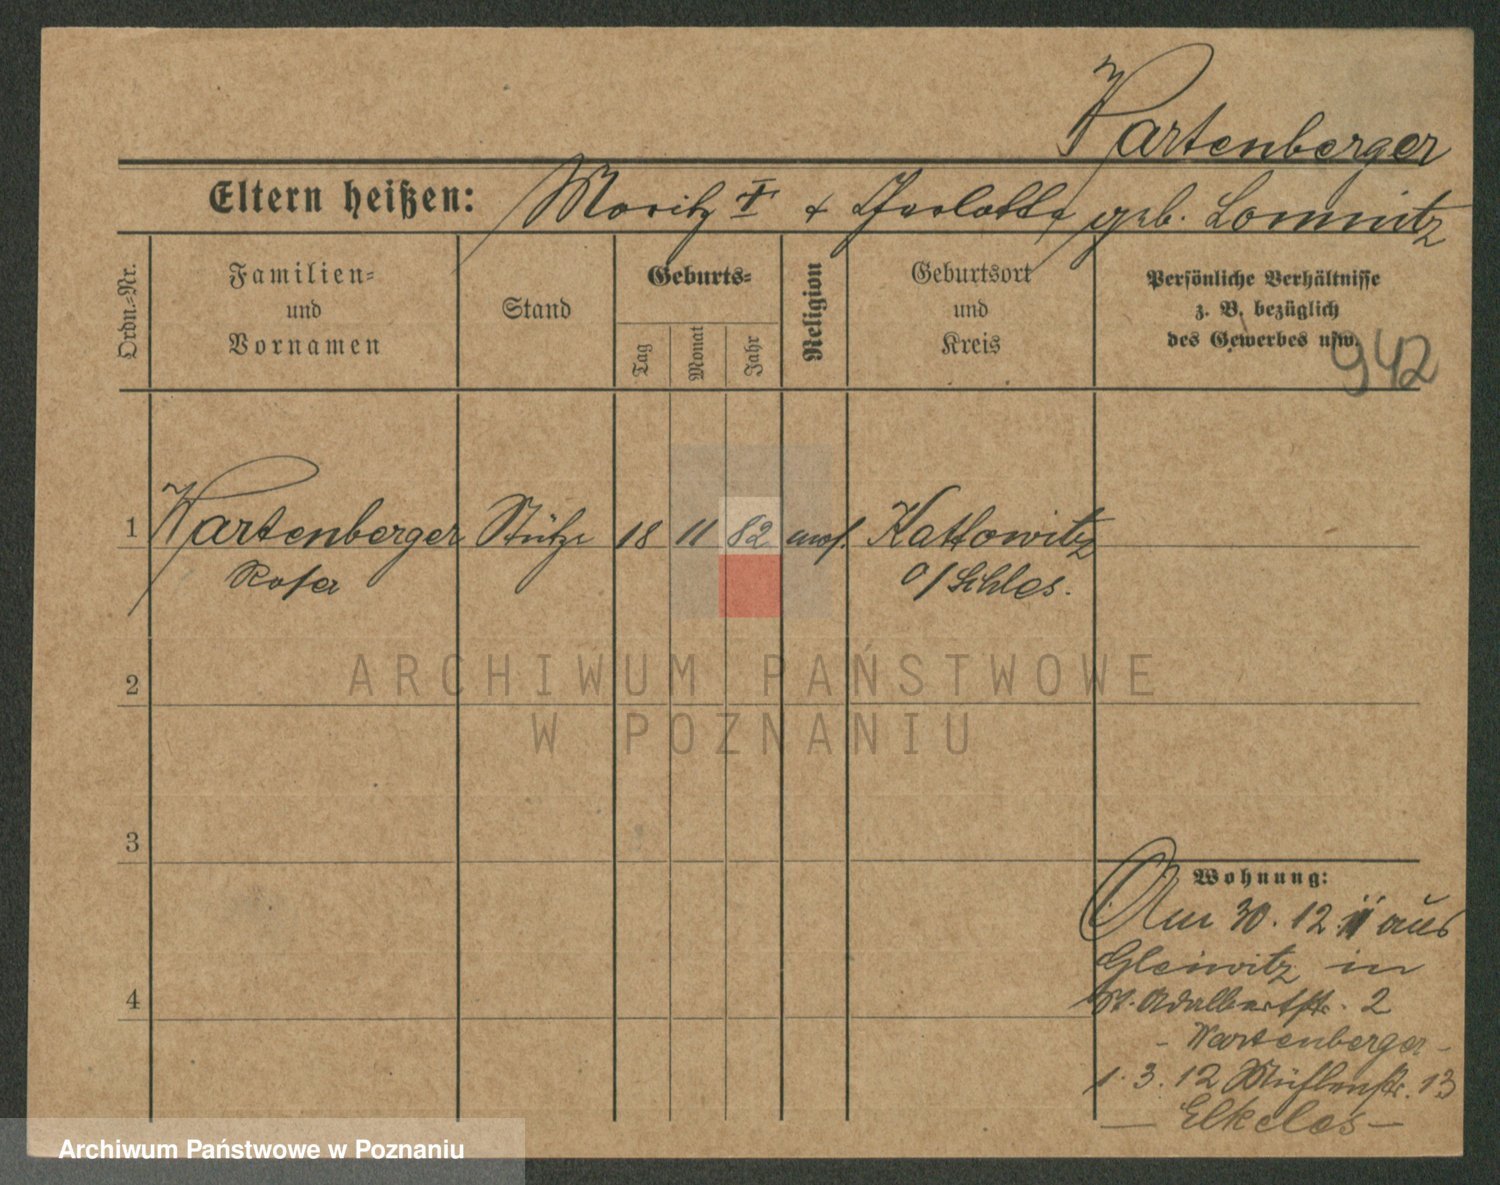 Wartenberger
Eltern heißen: Moritz † & Charlotte geb. Lomnitz
Ordn.-Nr.
Familien-
und
Vornamen
Stand
Geburts-
Tag
Monat
Jahr
Religion
Geburtsort
und
Kreis
Persönliche Verhältnisse
z. B. bezüglich
des Gewerbes usw.
942
1 Wartenberger Stütze 18 11 82 mos. Kattowitz
Rosa O/Schles.
ARCHIWUM PAŃSTWOWE
W POZNANIU
2
3
4
Wohnung:
30. 12 11 aus
Gleiwitz in
St. Adalbertstr. 2
- Wartenberger -
1. 3. 12 Mühlenstr. 13
- Elkeles -
Archiwum Państwowe w Poznaniu